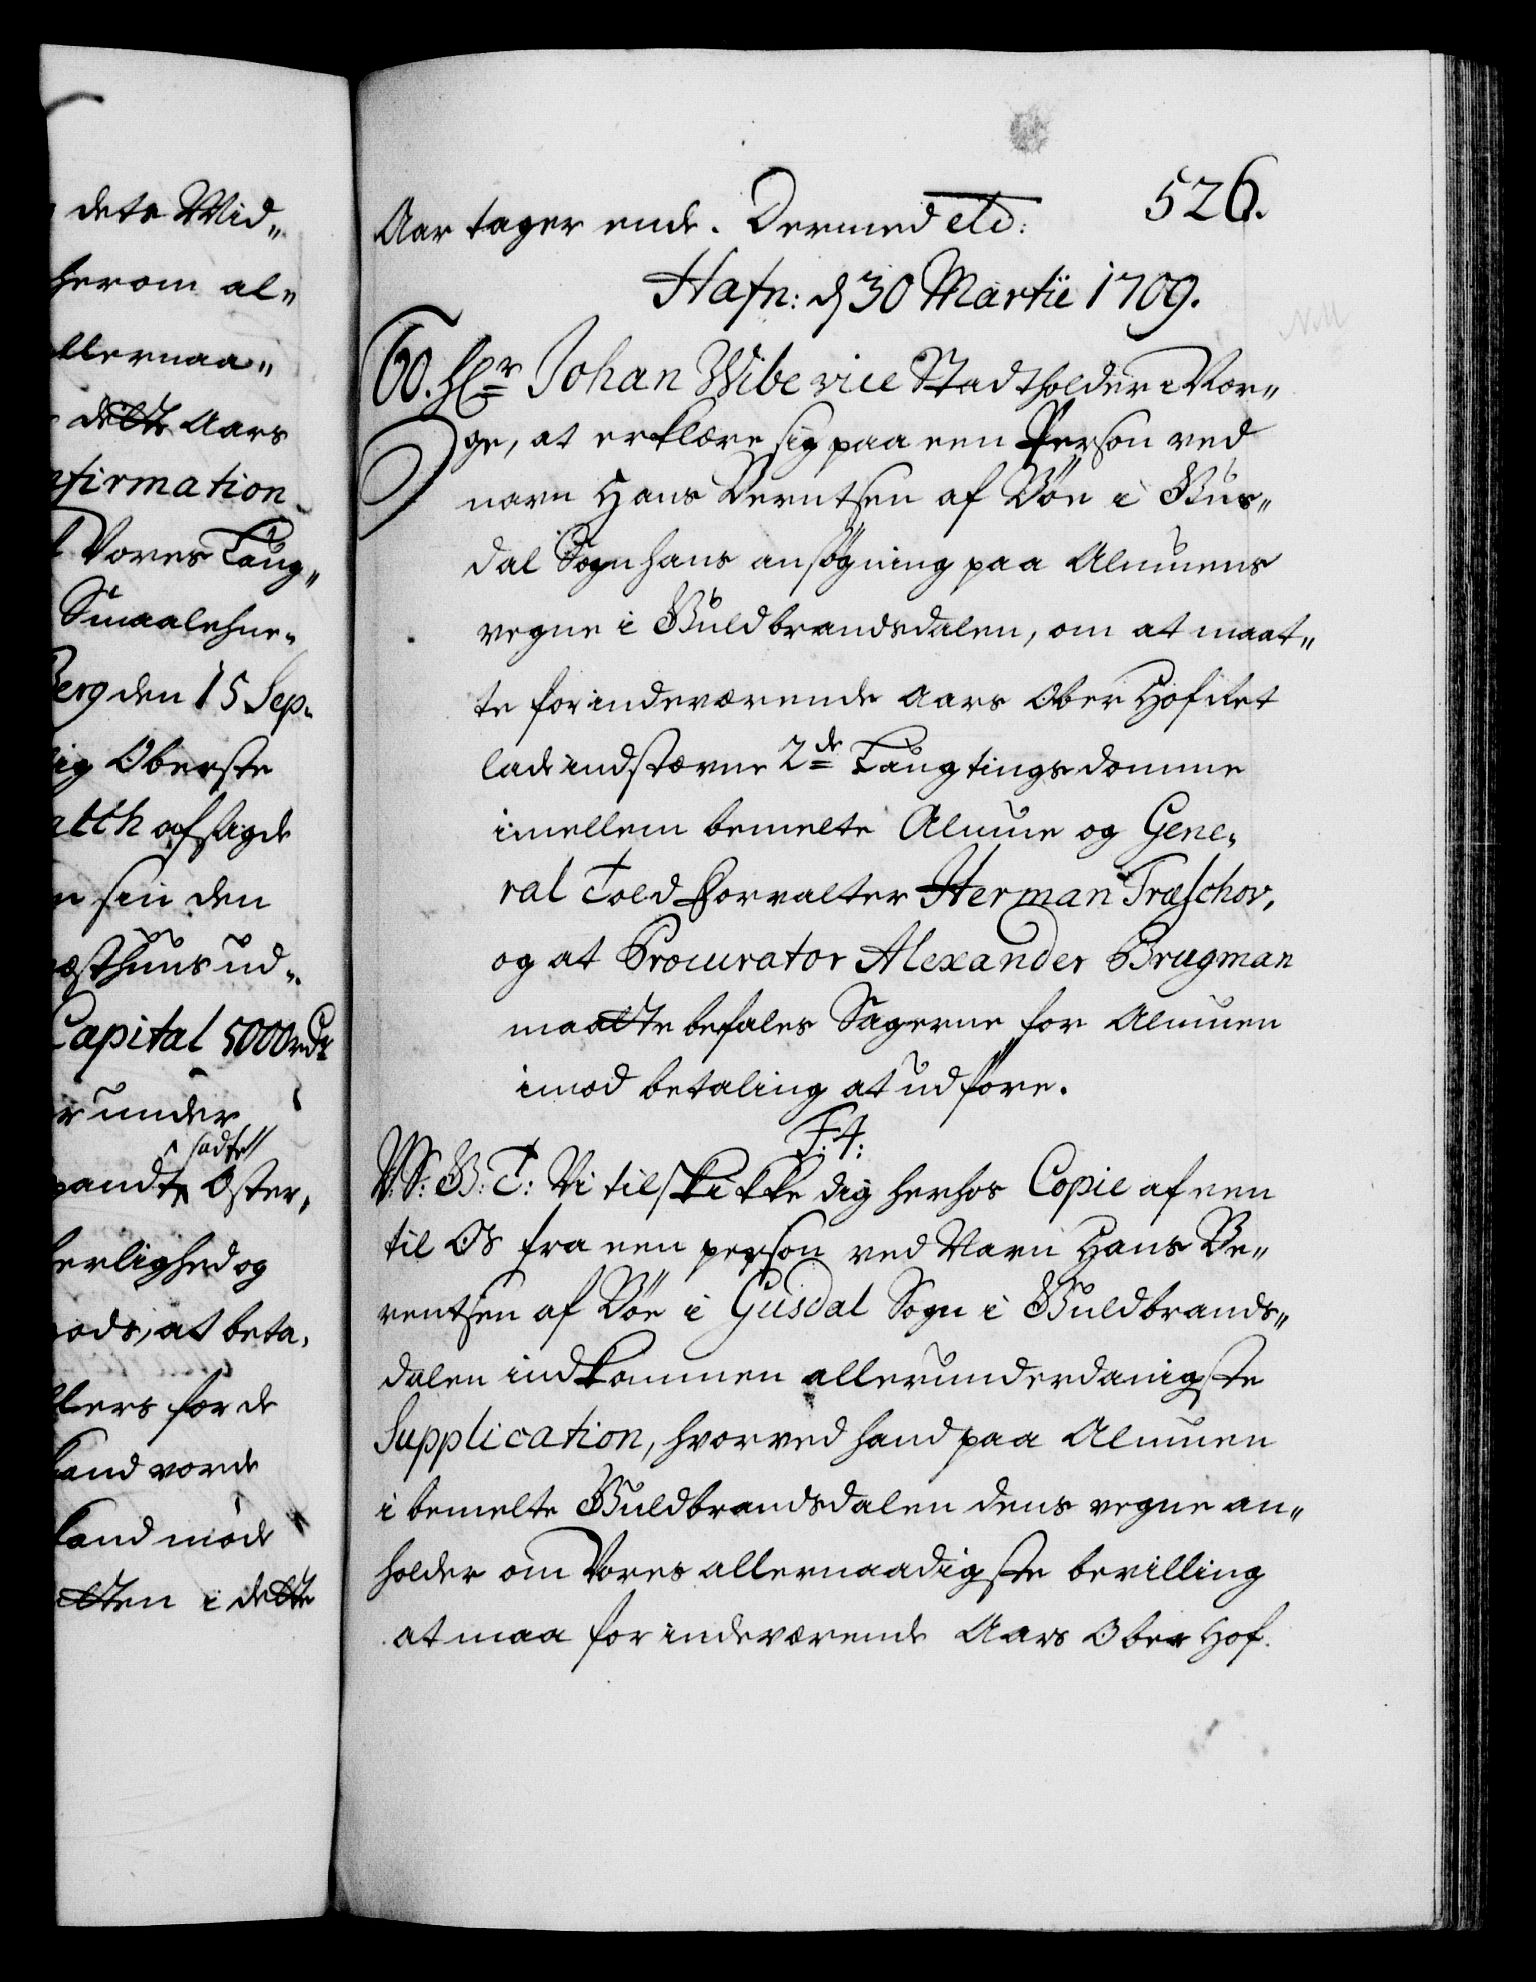 dets Mid„
herom al„
llernaa„
dette Aars
nfirmation
Vores Laug„
Smaalehne„
Berg den 15 Sep.
ig Oberste
afsagde
n sin den
ud„
Capital 5000 rdr
r under
sadte
pandte Oster,
herlighed og
ods, at beta,
llers for de
kand vorde
kand møde
etten i dette
526.
Aar tager ende. Dermed etc:
Hafn: d 30 Martii 1709.
60. Hr Johan Wibe vice Stadtholder i Nor„
ge, at erklære sig paa een Person ved
navn Hans Berntsen af Bøe i Gus„
dal Sogn hans ansøgning paa Almuens
vegne i Guldbrandsdalen, om at maat„
te for indeværende Aars Ober Hof Ret
lade indstævne 2de Laugtings domme
imellem bemelte Almue og Gene,
ral Told Forvalter Herman Træschov,
og at Procurator Alexander Brugman
maatte befales Sagerne for Almuen
imod betaling at udføre.
F: 4:
V. S: G: T: Vi tilskikke dig herhos Copie af een
til Os fra een person ved Navn Hans Be„
rentsen af Bøe i Gusdal Sogn i Guldbrands„
dalen indkommen allerunderdanigste
Supplication, hvorved hand paa Almuen
i bemelte Guldbrandsdalen dens vegne an„
holder om Vores allernaadigste bevilling
at maa for indeværende Aars Ober Hof.